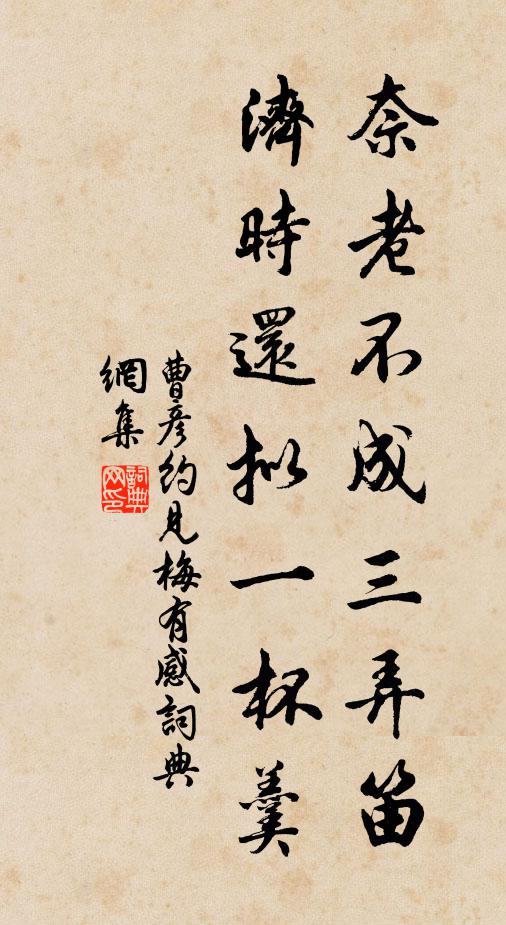 奈老不成三弄笛
濟時還拟一杯羹
曹彦約見梅有感詞典
網集
詞典网印